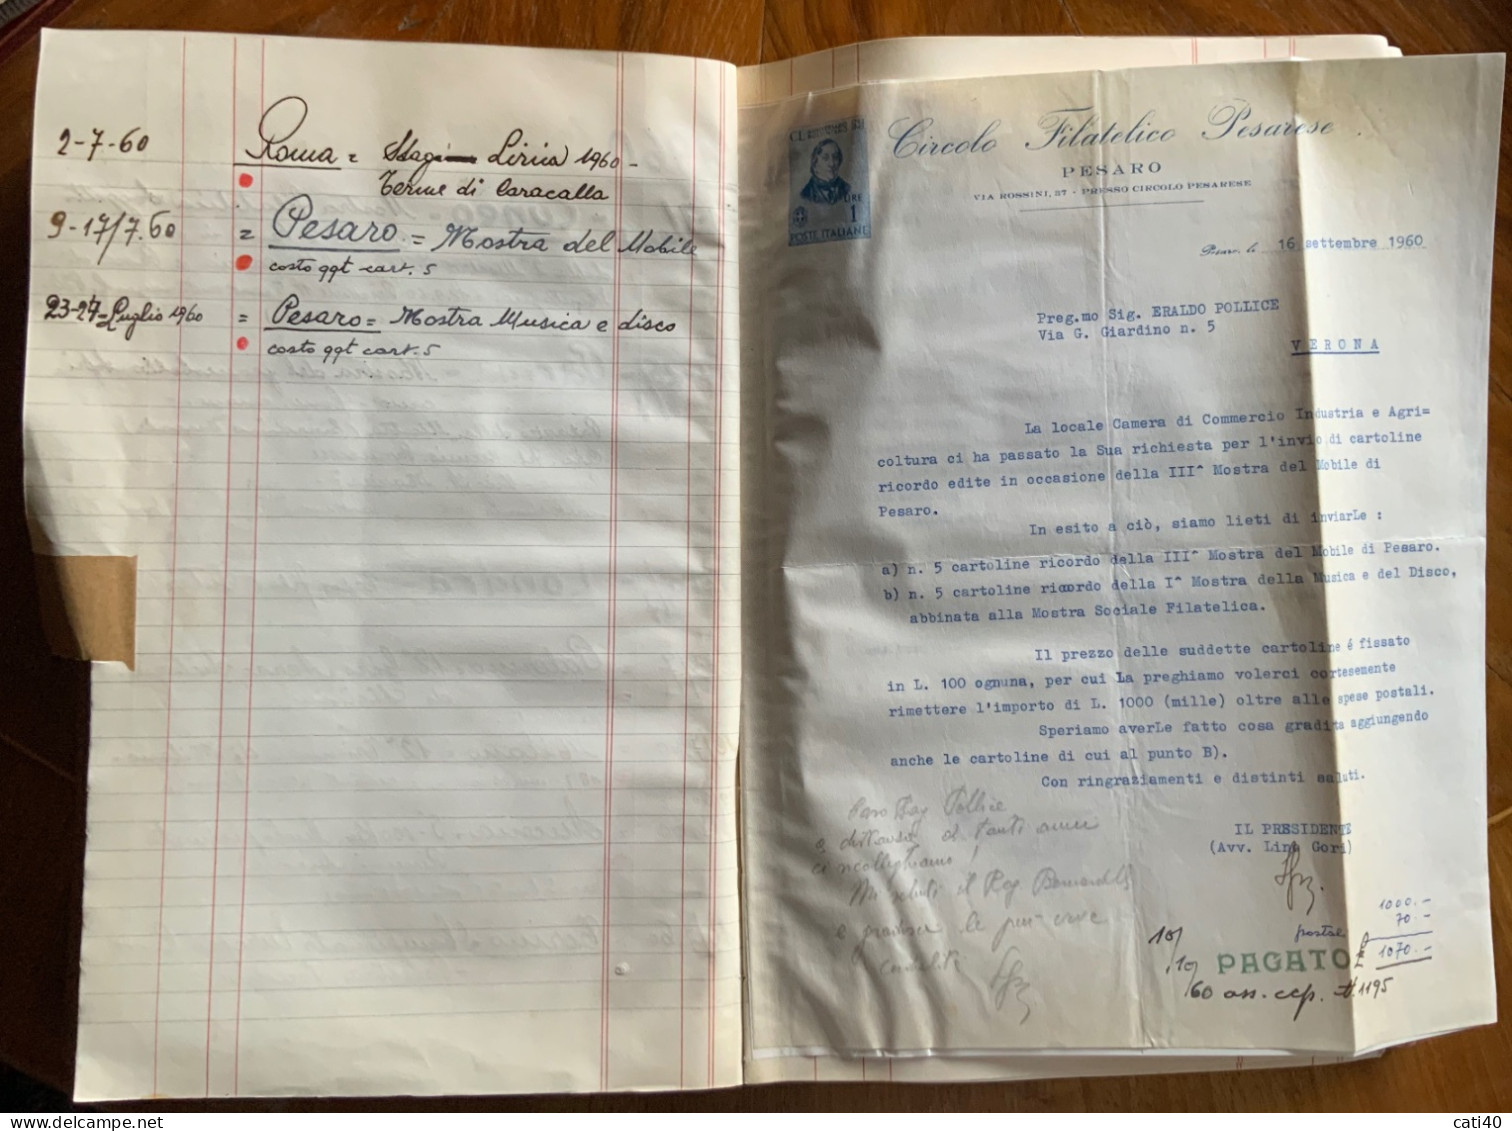 2-7-60
Roma = Stagione Lirica 1960 -
Terme di Caracalla
9-17/7.60 = Pesaro = Mostra del Mobile
costo ggt cart. 5
23-27=Luglio 1960 = Pesaro = Mostra Musica e disco
costo ggt cart. 5
LIRE 1
POSTE ITALIANE
Circolo Filatelico Pesarese
PESARO
VIA ROSSINI, 37 - PRESSO CIRCOLO PESARESE
Pesaro, li 16 settembre 1960
Preg.mo Sig. ERALDO POLLICE
Via G. Giardino n. 5
VERONA
La locale Camera di Commercio Industria e Agri=
coltura ci ha passato la Sua richiesta per l'invio di cartoline
ricordo edite in occasione della III^ Mostra del Mobile di
Pesaro.
In esito a ciò, siamo lieti di inviarLe :
a) n. 5 cartoline ricordo della III^ Mostra del Mobile di Pesaro.
b) n. 5 cartoline ricordo della I^ Mostra della Musica e del Disco,
abbinata alla Mostra Sociale Filatelica.
Il prezzo delle suddette cartoline é fissato
in L. 100 ognuna, per cui La preghiamo volerci cortesemente
rimettere l'importo di L. 1000 (mille) oltre alle spese postali.
Speriamo averLe fatto cosa gradita aggiungendo
anche le cartoline di cui al punto B).
Con ringraziamenti e distinti saluti.
Caro Rag Pollice
a distanza di tanti anni
ci ricolleghiamo!
Mi saluti il Rag
e gradisca le più vive
cordialità
IL PRESIDENTE
(Avv. Lino Gori)
1000.-
postae 70.-
PAGATO £ 1070.-
10/10/60 ass. ccp. N. 1195
cati40